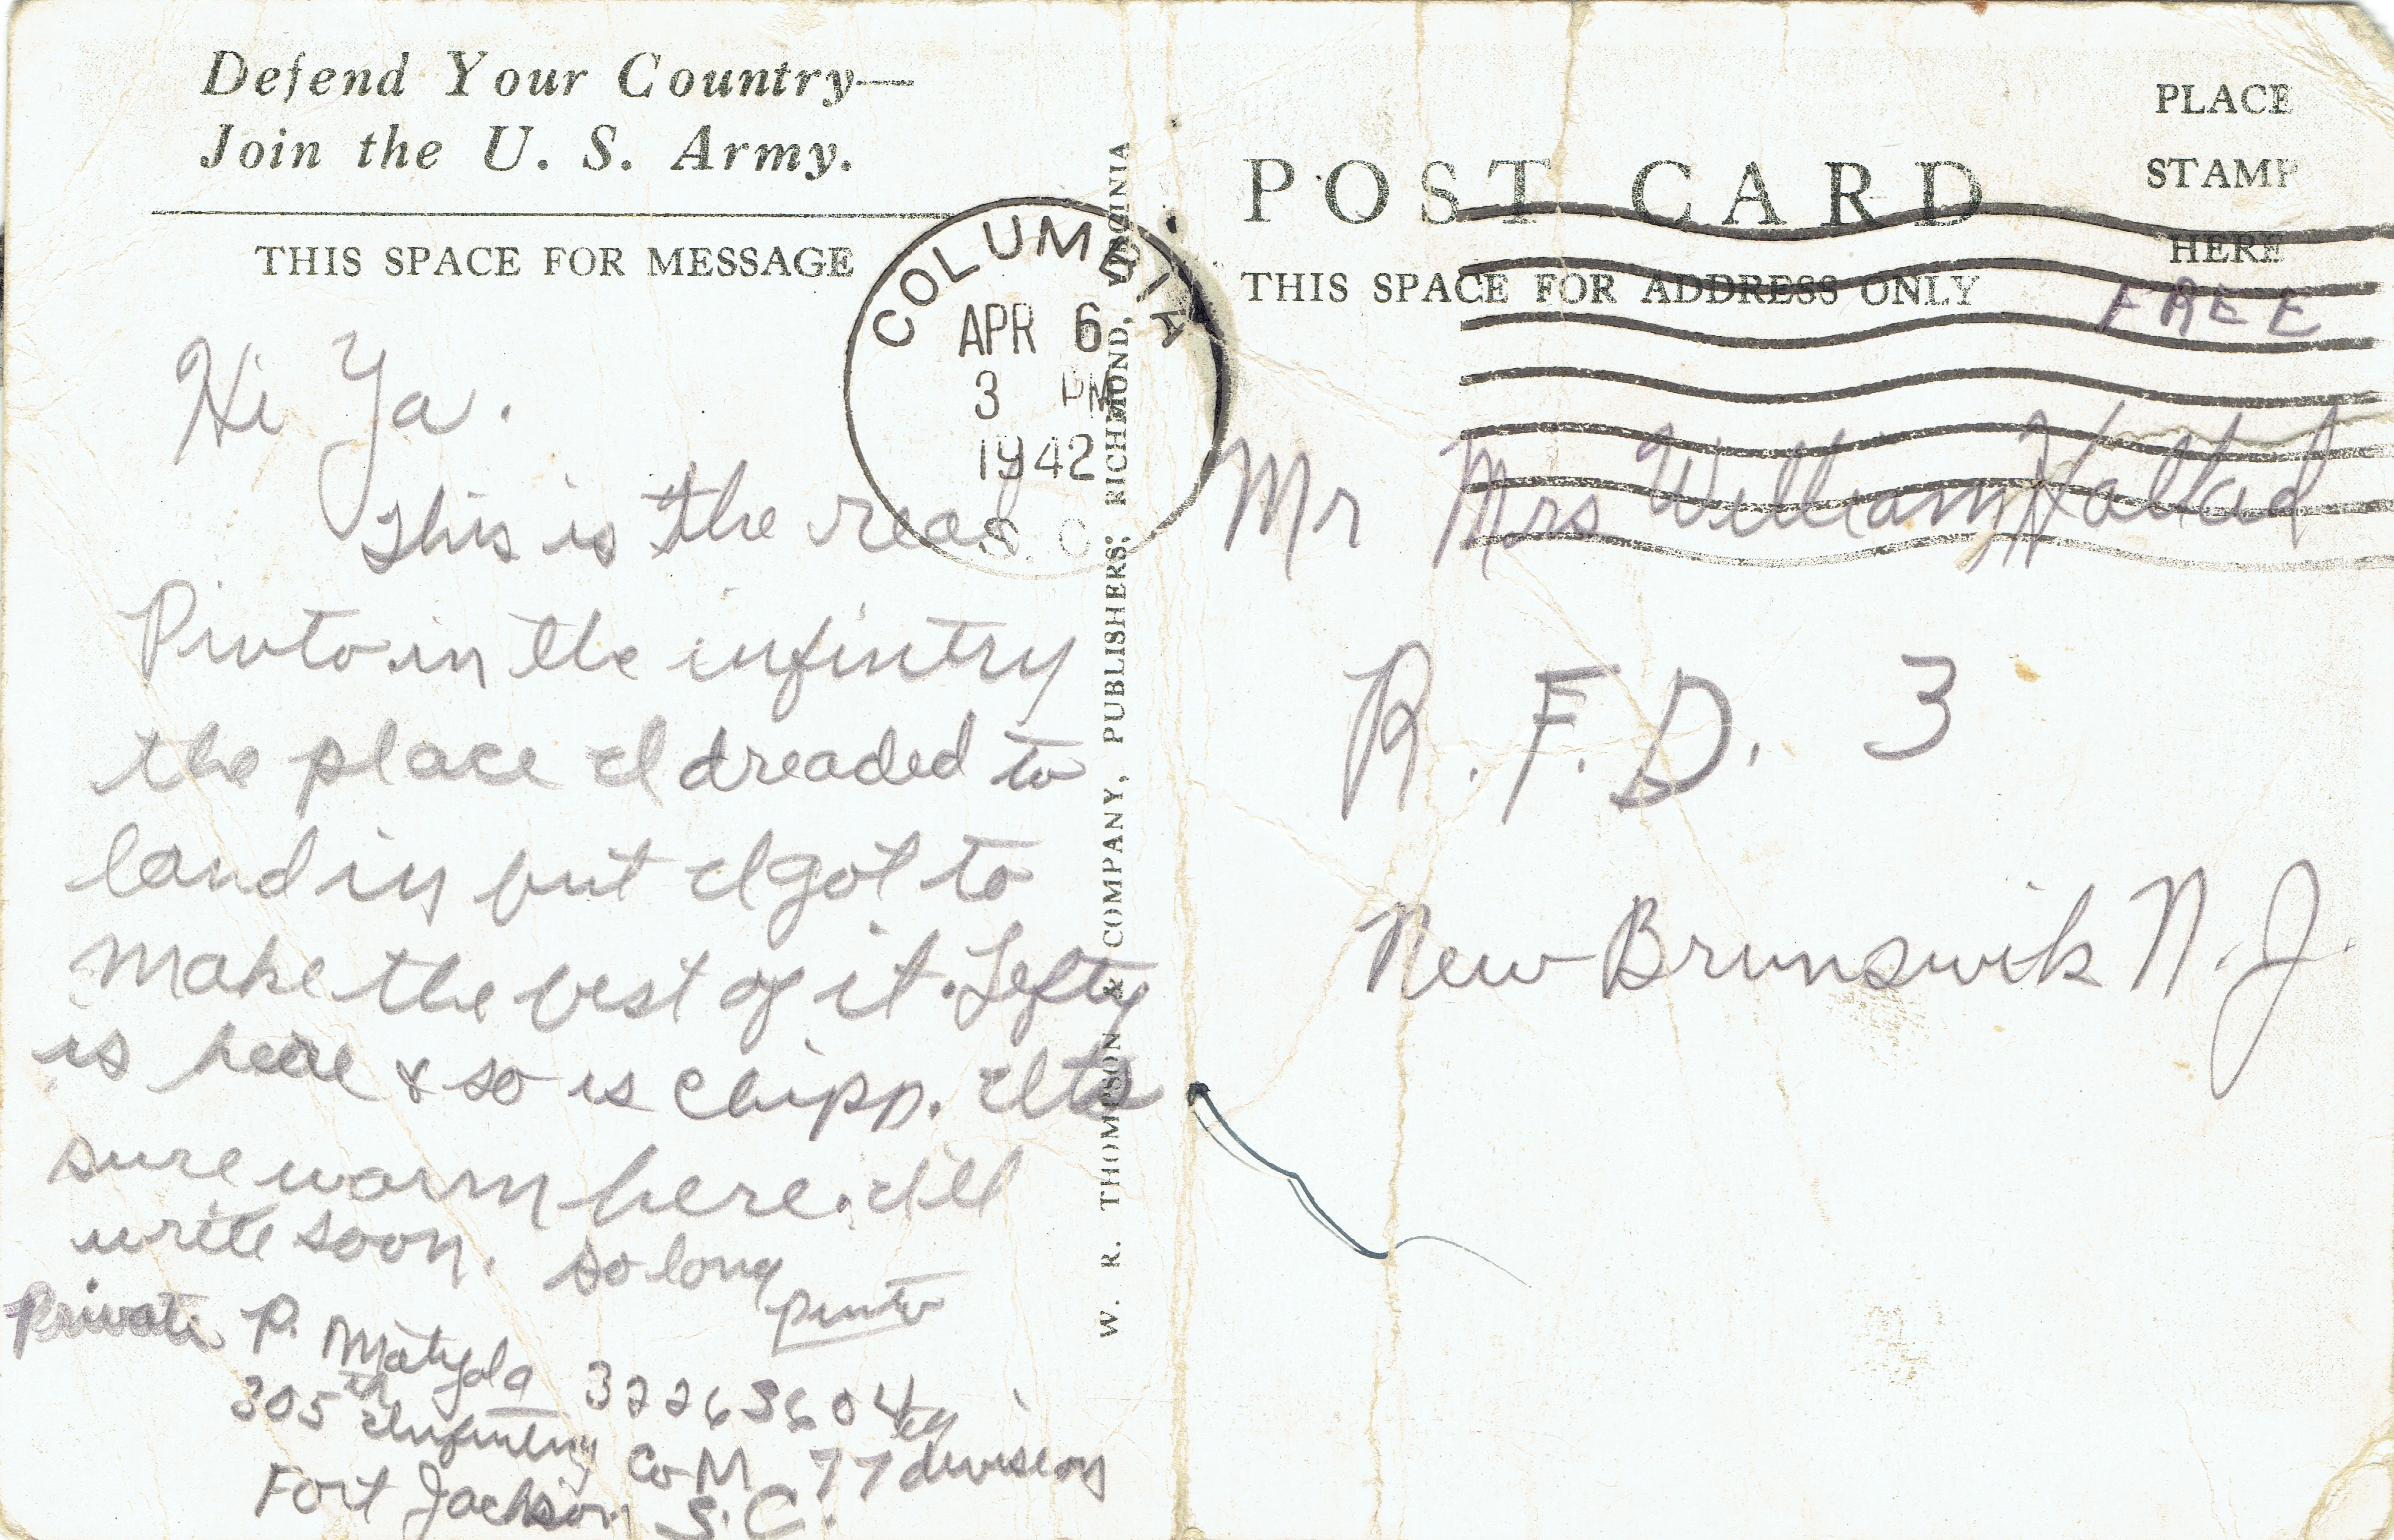 Defend Your Country—
Join the U. S. Army.
THIS SPACE FOR MESSAGE
Hi Ya.
This is the real
Pinto in the infintry
the place I dreaded to
land in but I got to
make the best of it. Lefty
is here & so is Chipp. Its
sure warm here. Ill
write soon. So long
Pinto
Private P. Matyola 32263604
305th Infantry Co M 77 division
Fort Jackson S.C.
COLUMBIA
APR 6
3 PM
1942
S. C.
W. R. THOMPSON & COMPANY, PUBLISHERS, RICHMOND, VIRGINIA
POST CARD
THIS SPACE FOR ADDRESS ONLY
PLACE
STAMP
HERE
FREE
Mr Mrs William
R. F. D. 3
New Brunswik N. J.